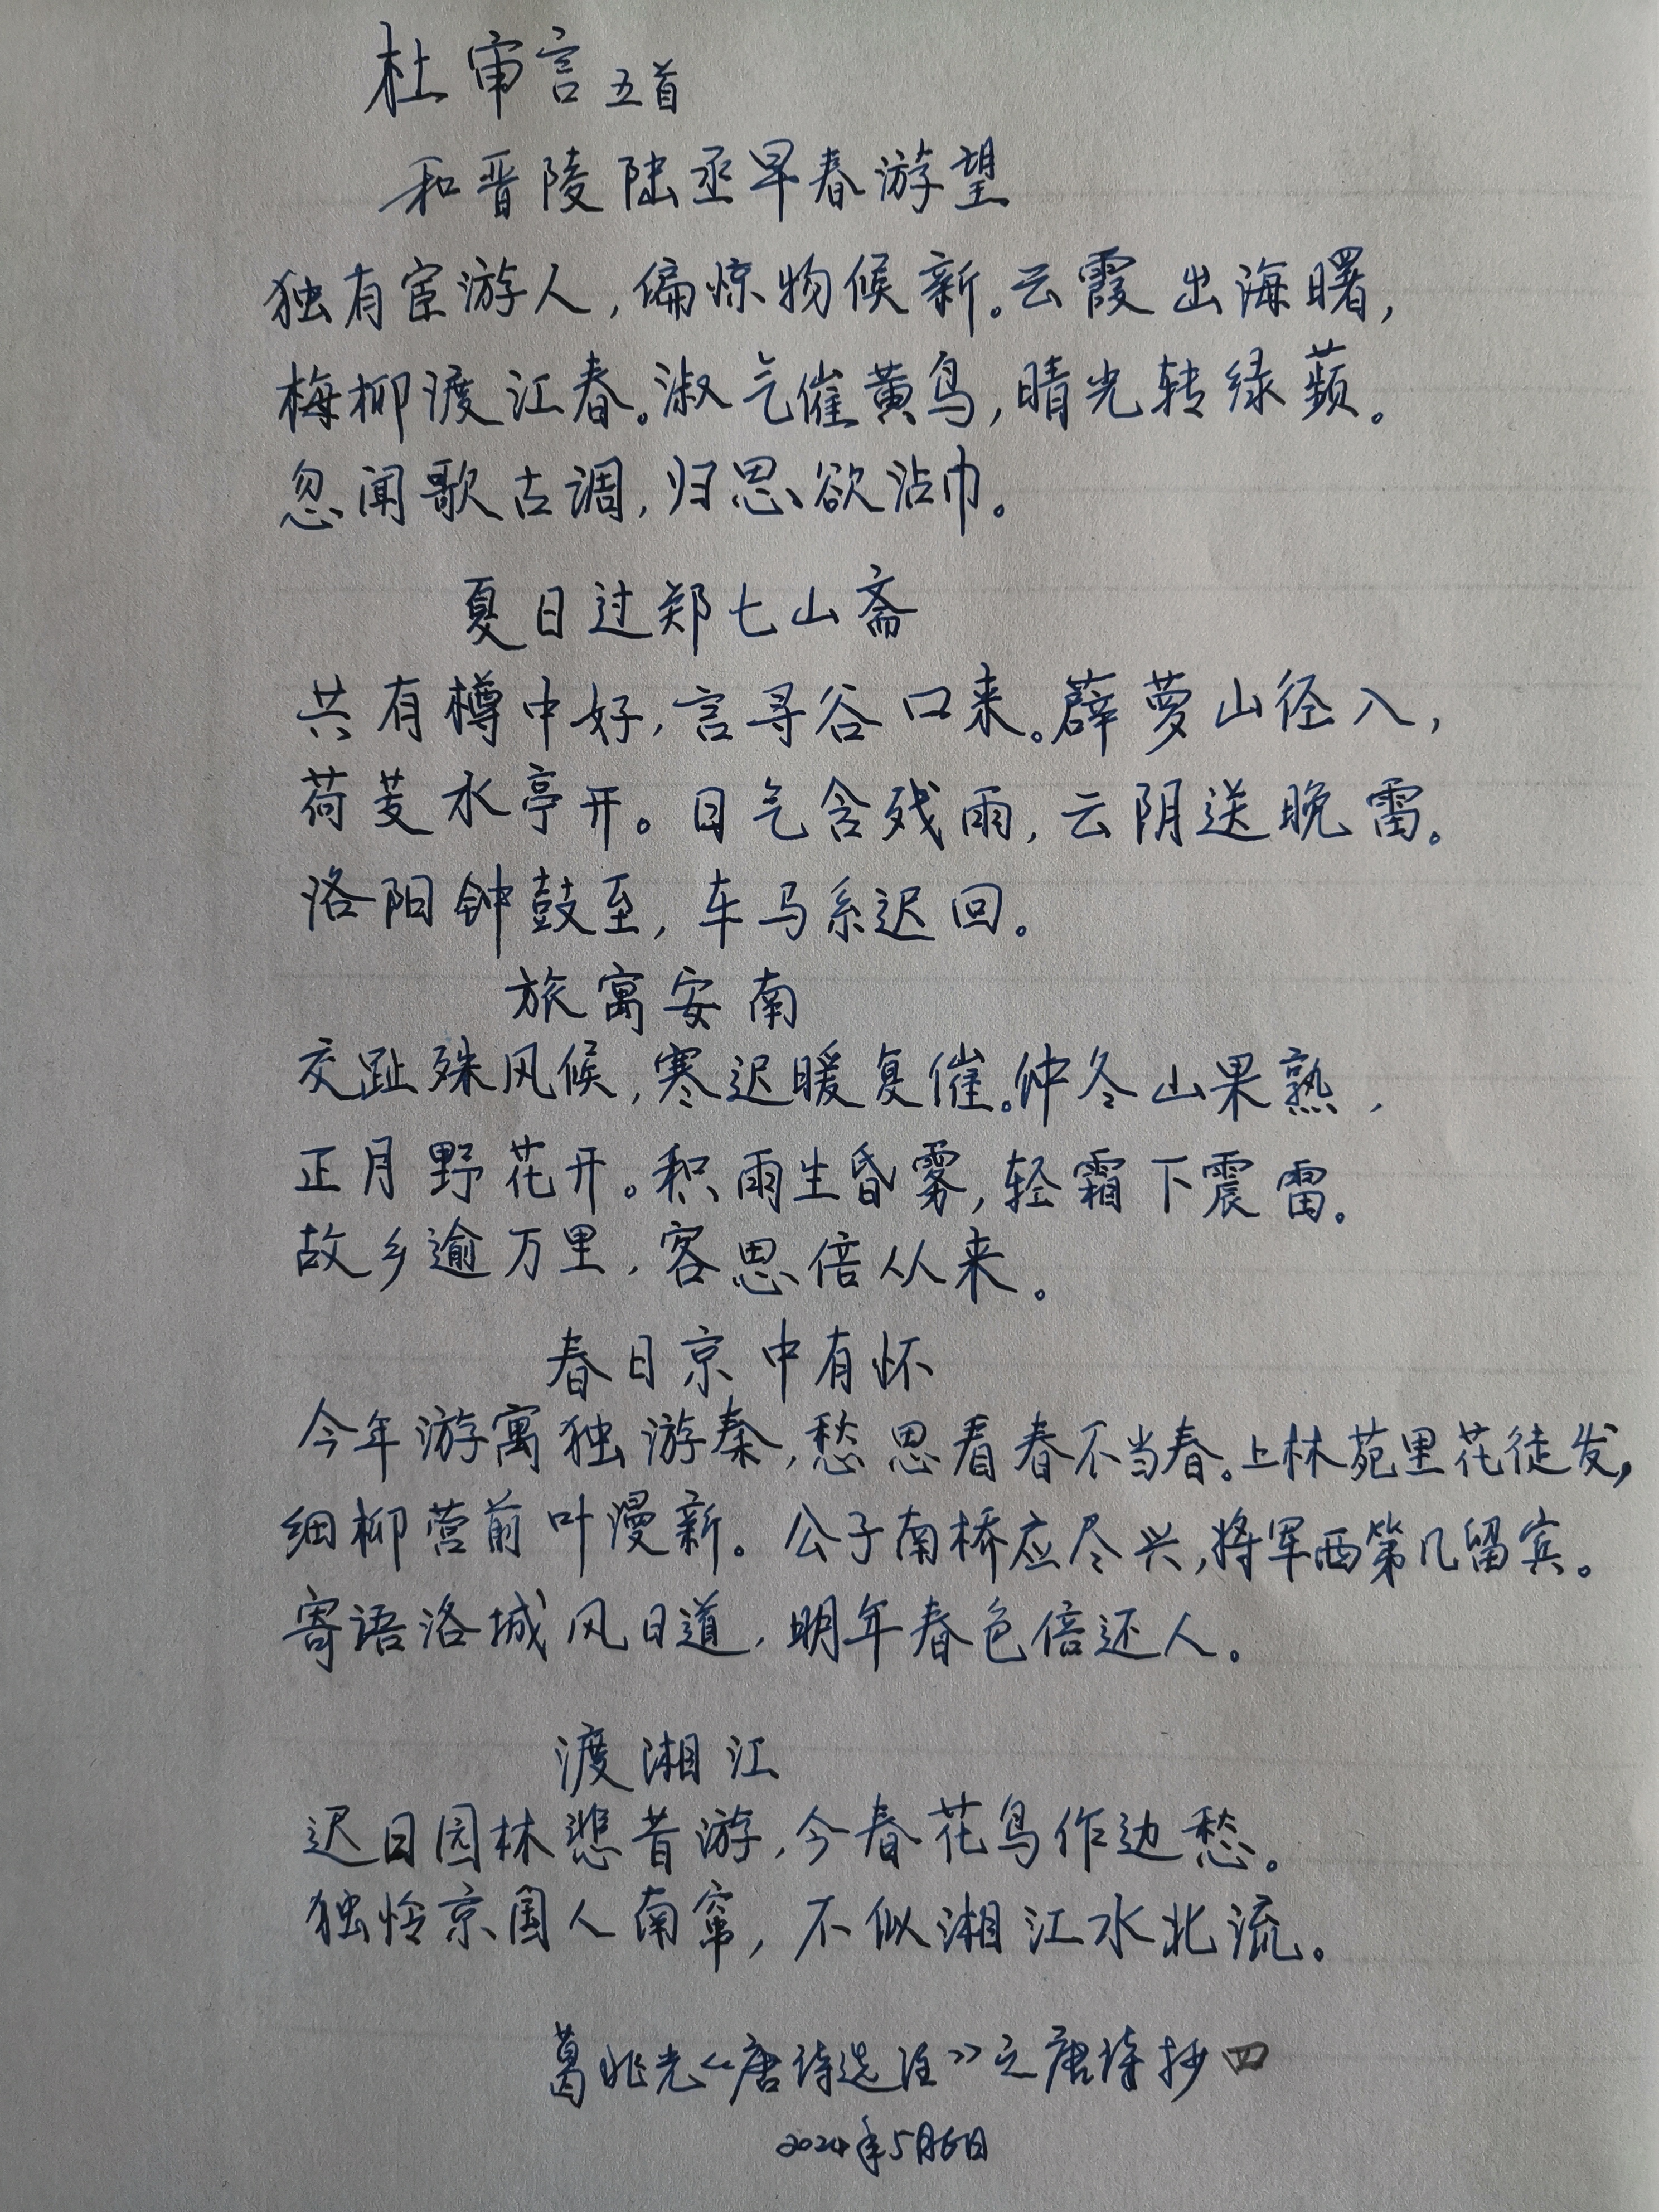 杜审言 五首
和晋陵陆丞早春游望
独有宦游人，偏惊物候新。云霞出海曙，
梅柳渡江春。淑气催黄鸟，晴光转绿蘋。
忽闻歌古调，归思欲沾巾。
夏日过郑七山斋
共有樽中好，言寻谷口来。薜萝山径入，
荷芰水亭开。日气含残雨，云阴送晚雷。
洛阳钟鼓至，车马系迟回。
旅寓安南
交趾殊风候，寒迟暖复催。仲冬山果熟，
正月野花开。积雨生昏雾，轻霜下震雷。
故乡逾万里，客思倍从来。
春日京中有怀
今年游寓独游秦，愁思看春不当春。上林苑里花徒发，
细柳营前叶漫新。公子南桥应尽兴，将军西第几留宾。
寄语洛城风日道，明年春色倍还人。
渡湘江
迟日园林悲昔游，今春花鸟作边愁。
独怜京国人南窜，不似湘江水北流。
葛兆光《唐诗选注》之唐诗抄四
2024年5月6日